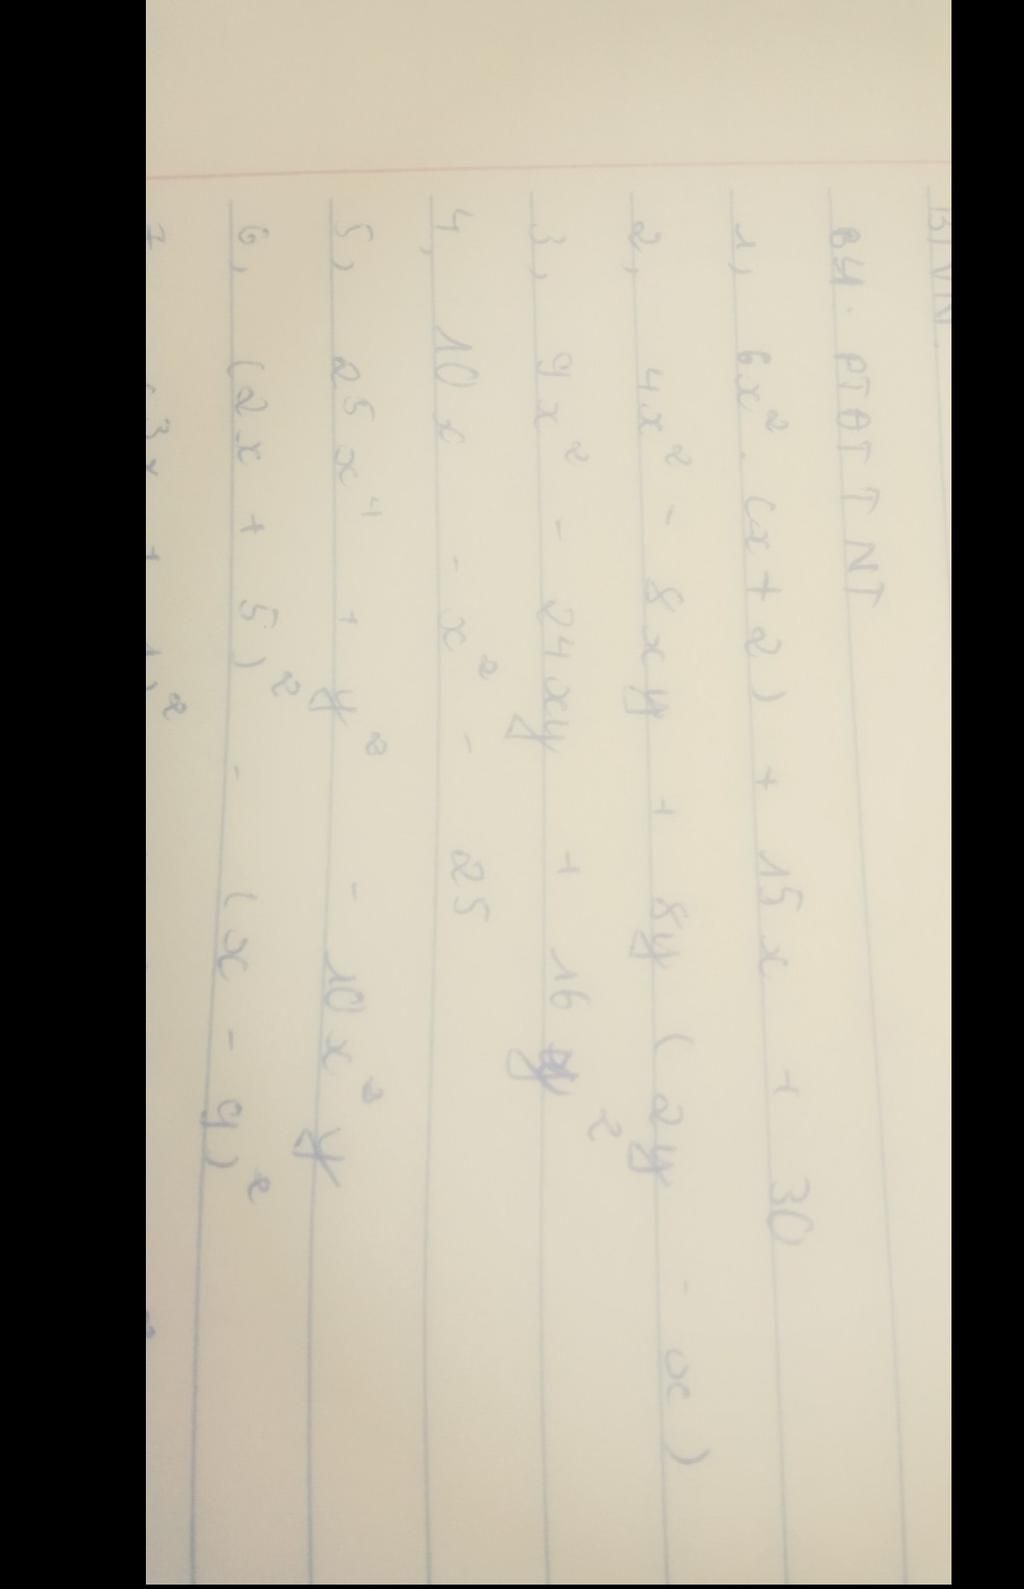 BTVN.
B4. PTĐTTNT
1, 6x². (x + 2) + 15x + 30
2, 4x² - 8xy + 8y (2y - x)
3, 9x² - 24xy + 16y²
4, 10x - x² - 25
5, 25x⁴ + y² - 10x²y
6, (2x + 5)² - (x - 9)²